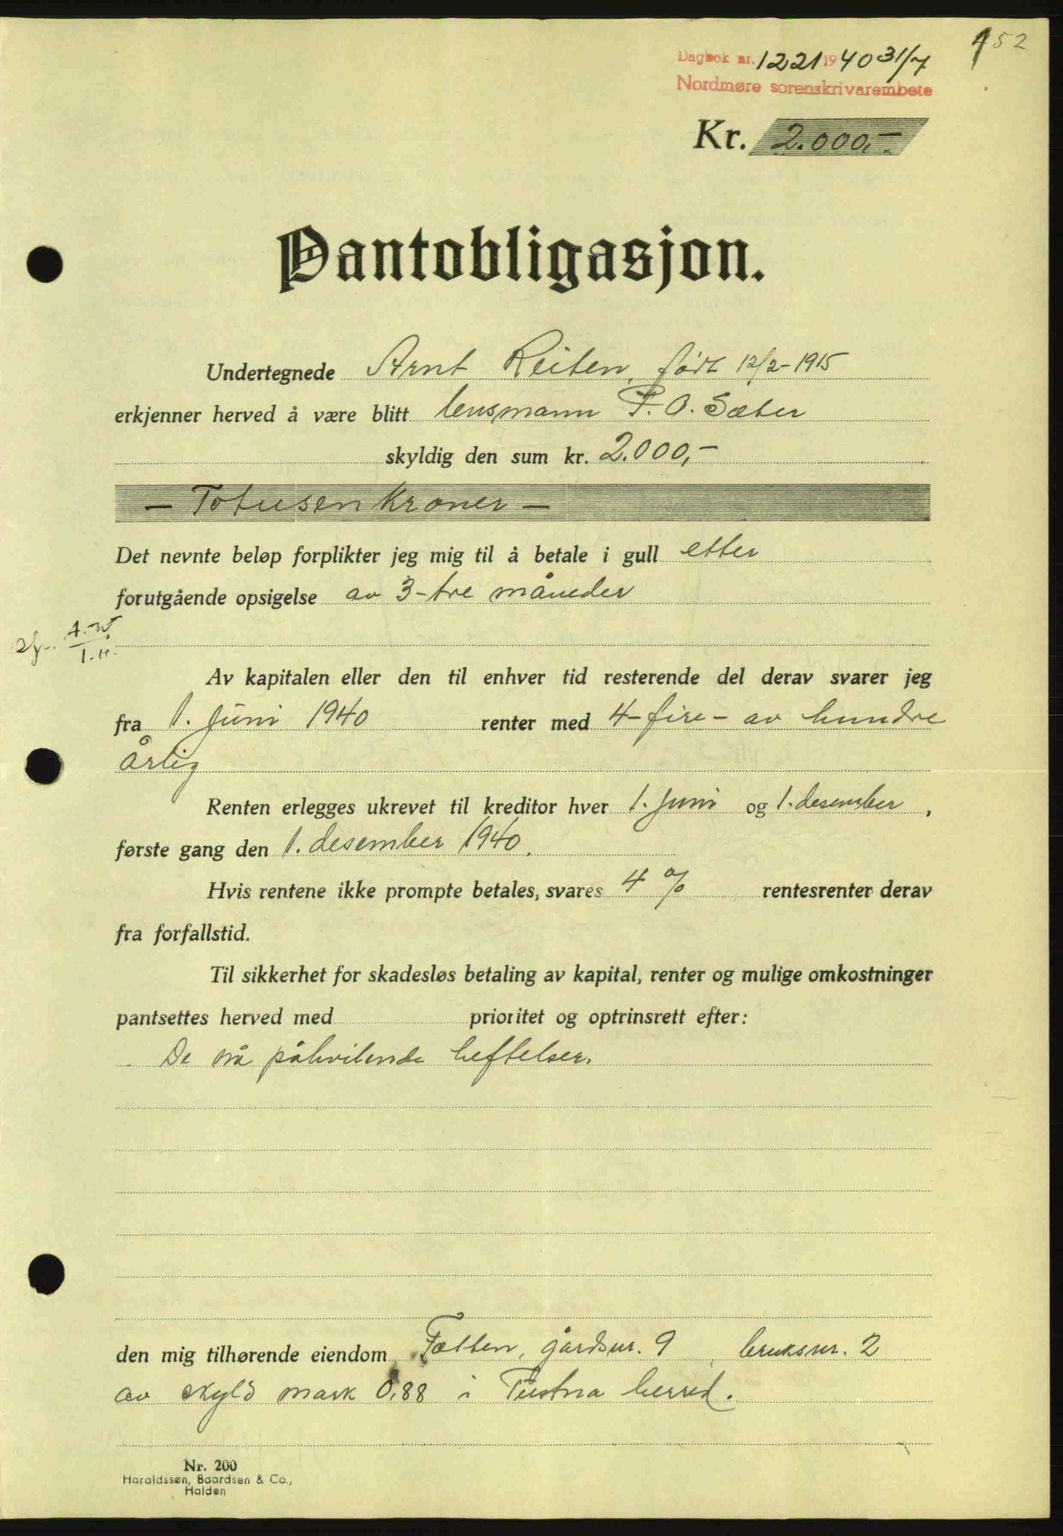 152
Dagbok nr. 1221 1940 31/7
Nordmøre sorenskrivarembete
Kr. 2.000,-
Pantobligasjon.
Undertegnede Arnt Reiten, født 12/2-1915
erkjenner herved å være blitt lensmann P. O. Sæter
skyldig den sum kr. 2.000,-
- Totusen kroner -
Det nevnte beløp forplikter jeg mig til å betale i gull etter
forutgående opsigelse av 3-tre måneder
Av kapitalen eller den til enhver tid resterende del derav svarer jeg
fra 1. juni 1940 renter med 4-fire- av hundre
årlig
Renten erlegges ukrevet til kreditor hver 1. juni og 1. desember,
første gang den 1. desember 1940.
Hvis rentene ikke prompte betales, svares 4 % rentesrenter derav
fra forfallstid.
Til sikkerhet for skadesløs betaling av kapital, renter og mulige omkostninger
pantsettes herved med prioritet og optrinsrett efter:
De nå påhvilende heftelser.
den mig tilhørende eiendom Fætten, gårdsnr. 9, bruksnr. 2
av skyld mark 0,88 i Tustna herred.
Nr. 200
Haraldssøn, Baardsen & Co.,
Halden